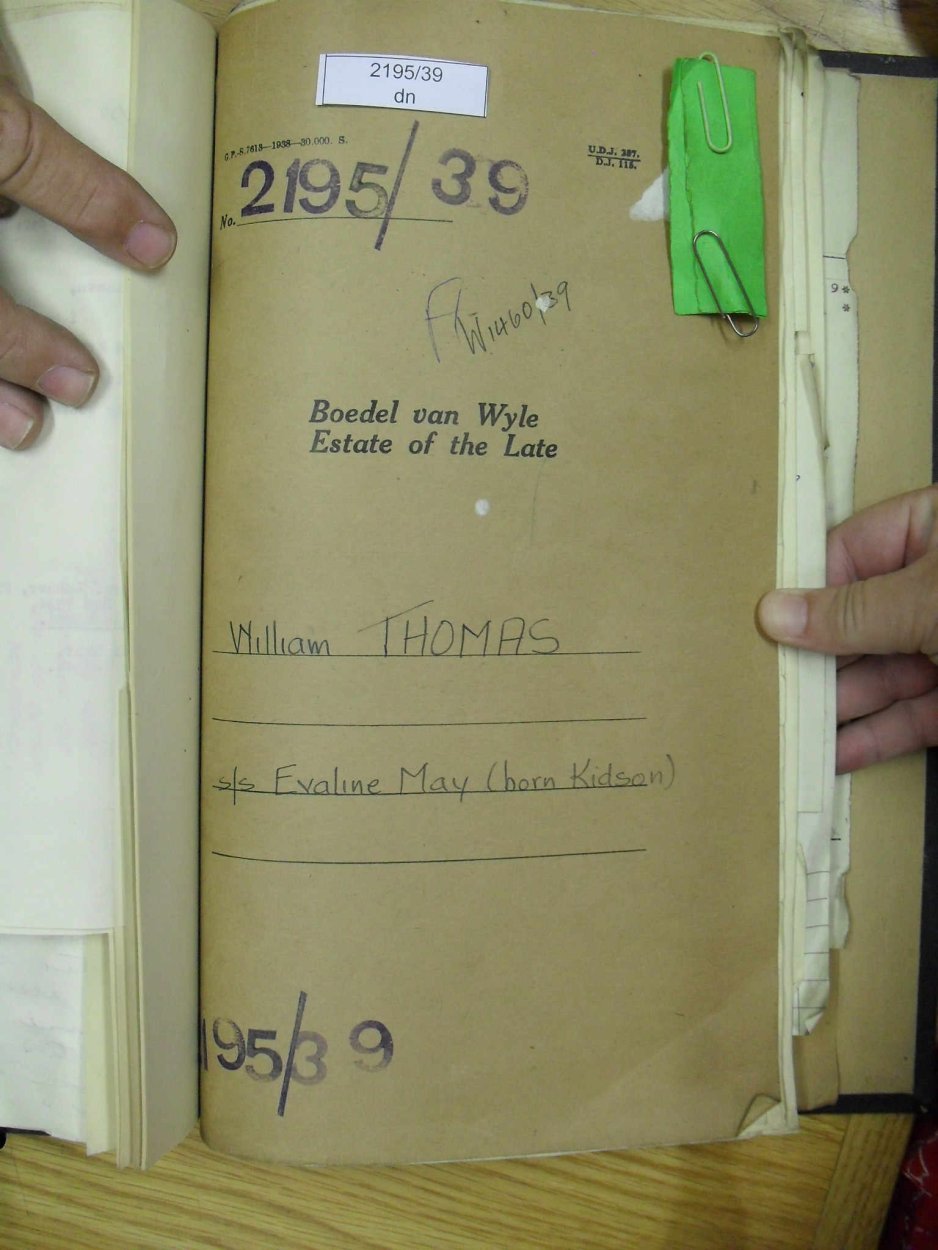 2195/39
dn
G.P.-S.7613—1938—30.000. S.
U.D.J. 387.
D.J. 115.
No. 2195/39
W1460/39
Boedel van Wyle
Estate of the Late
William THOMAS
s/s Evaline May (born Kidson)
195/39
9*
*